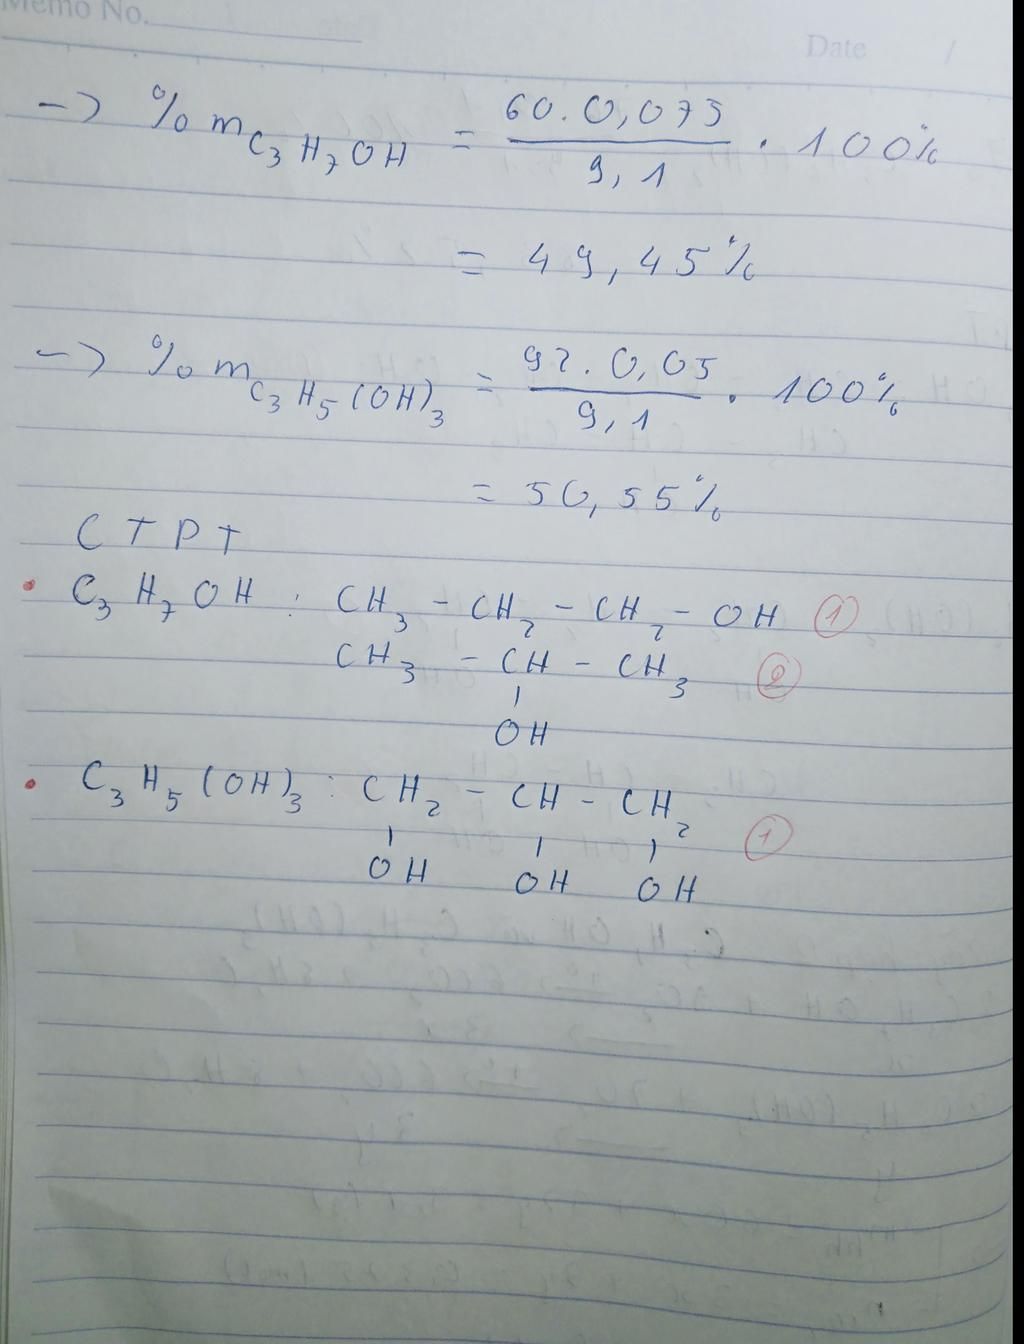 Memo No.
Date /
-> % m C₃H₇OH = 60.0,075 / 9,1 . 100%
= 49,45%
-> % m C₃H₅(OH)₃ = 92.0,05 / 9,1 . 100%
= 50,55%
CTPT
• C₃H₇OH : CH₃ - CH₂ - CH₂ - OH ①
CH₃ - CH - CH₃ ②
OH
• C₃H₅(OH)₃ : CH₂ - CH - CH₂ ①
OH OH OH